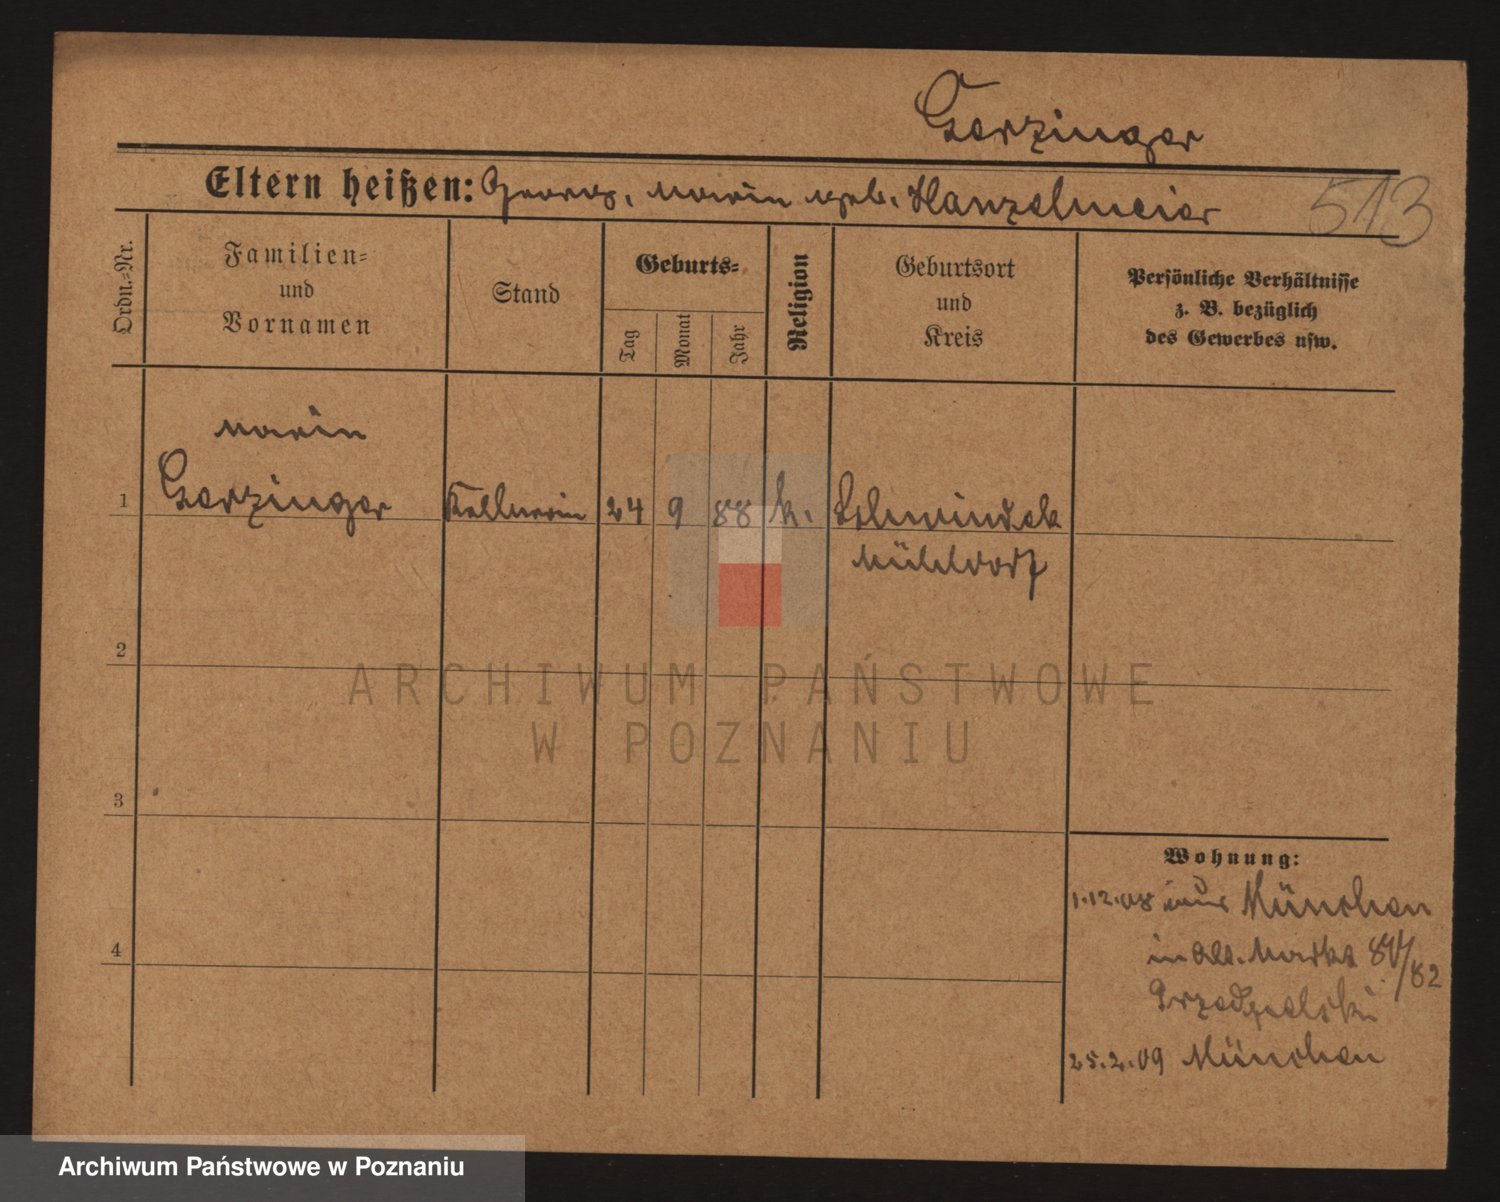 Gerzinger
513
Eltern heißen: Georg, Marie geb. Hanzelmeier
Ordn.=Nr.
Familien=
und
Vornamen
Stand
Geburts=
Tag
Monat
Jahr
Religion
Geburtsort
und
Kreis
Persönliche Verhältnisse
z. B. bezüglich
des Gewerbes usw.
Marie
1 Gerzinger Kellnerin 24 9 88 k. Schwindeck
Mühldorf
2
3
4
Wohnung:
1.12.08 aus München
in Alt. Markt 81/82
25.2.09 München
ARCHIWUM PAŃSTWOWE
W POZNANIU
Archiwum Państwowe w Poznaniu